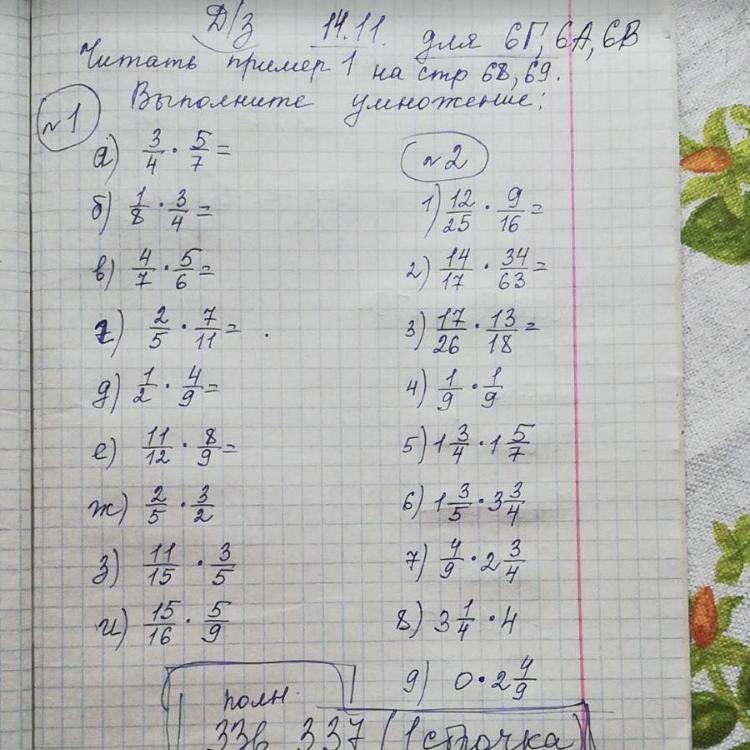 Д/з 14.11. для 6Г, 6А, 6В
Читать пример 1 на стр 68, 69.
Выполните умножение:
№1
а) 3/4 · 5/7 =
б) 1/8 · 3/4 =
в) 4/7 · 5/6 =
г) 2/5 · 7/11 =
д) 1/2 · 4/9 =
е) 11/12 · 8/9 =
ж) 2/5 · 3/2
з) 11/15 · 3/5
и) 15/16 · 5/9
№2
1) 12/25 · 9/16 =
2) 14/17 · 34/63 =
3) 17/26 · 13/18 =
4) 1/9 · 1/9
5) 1 3/4 · 1 5/7
6) 1 3/5 · 3 3/4
7) 4/9 · 2 3/4
8) 3 1/4 · 4
9) 0 · 2 4/9
полн.
336, 337 (1 строчка)